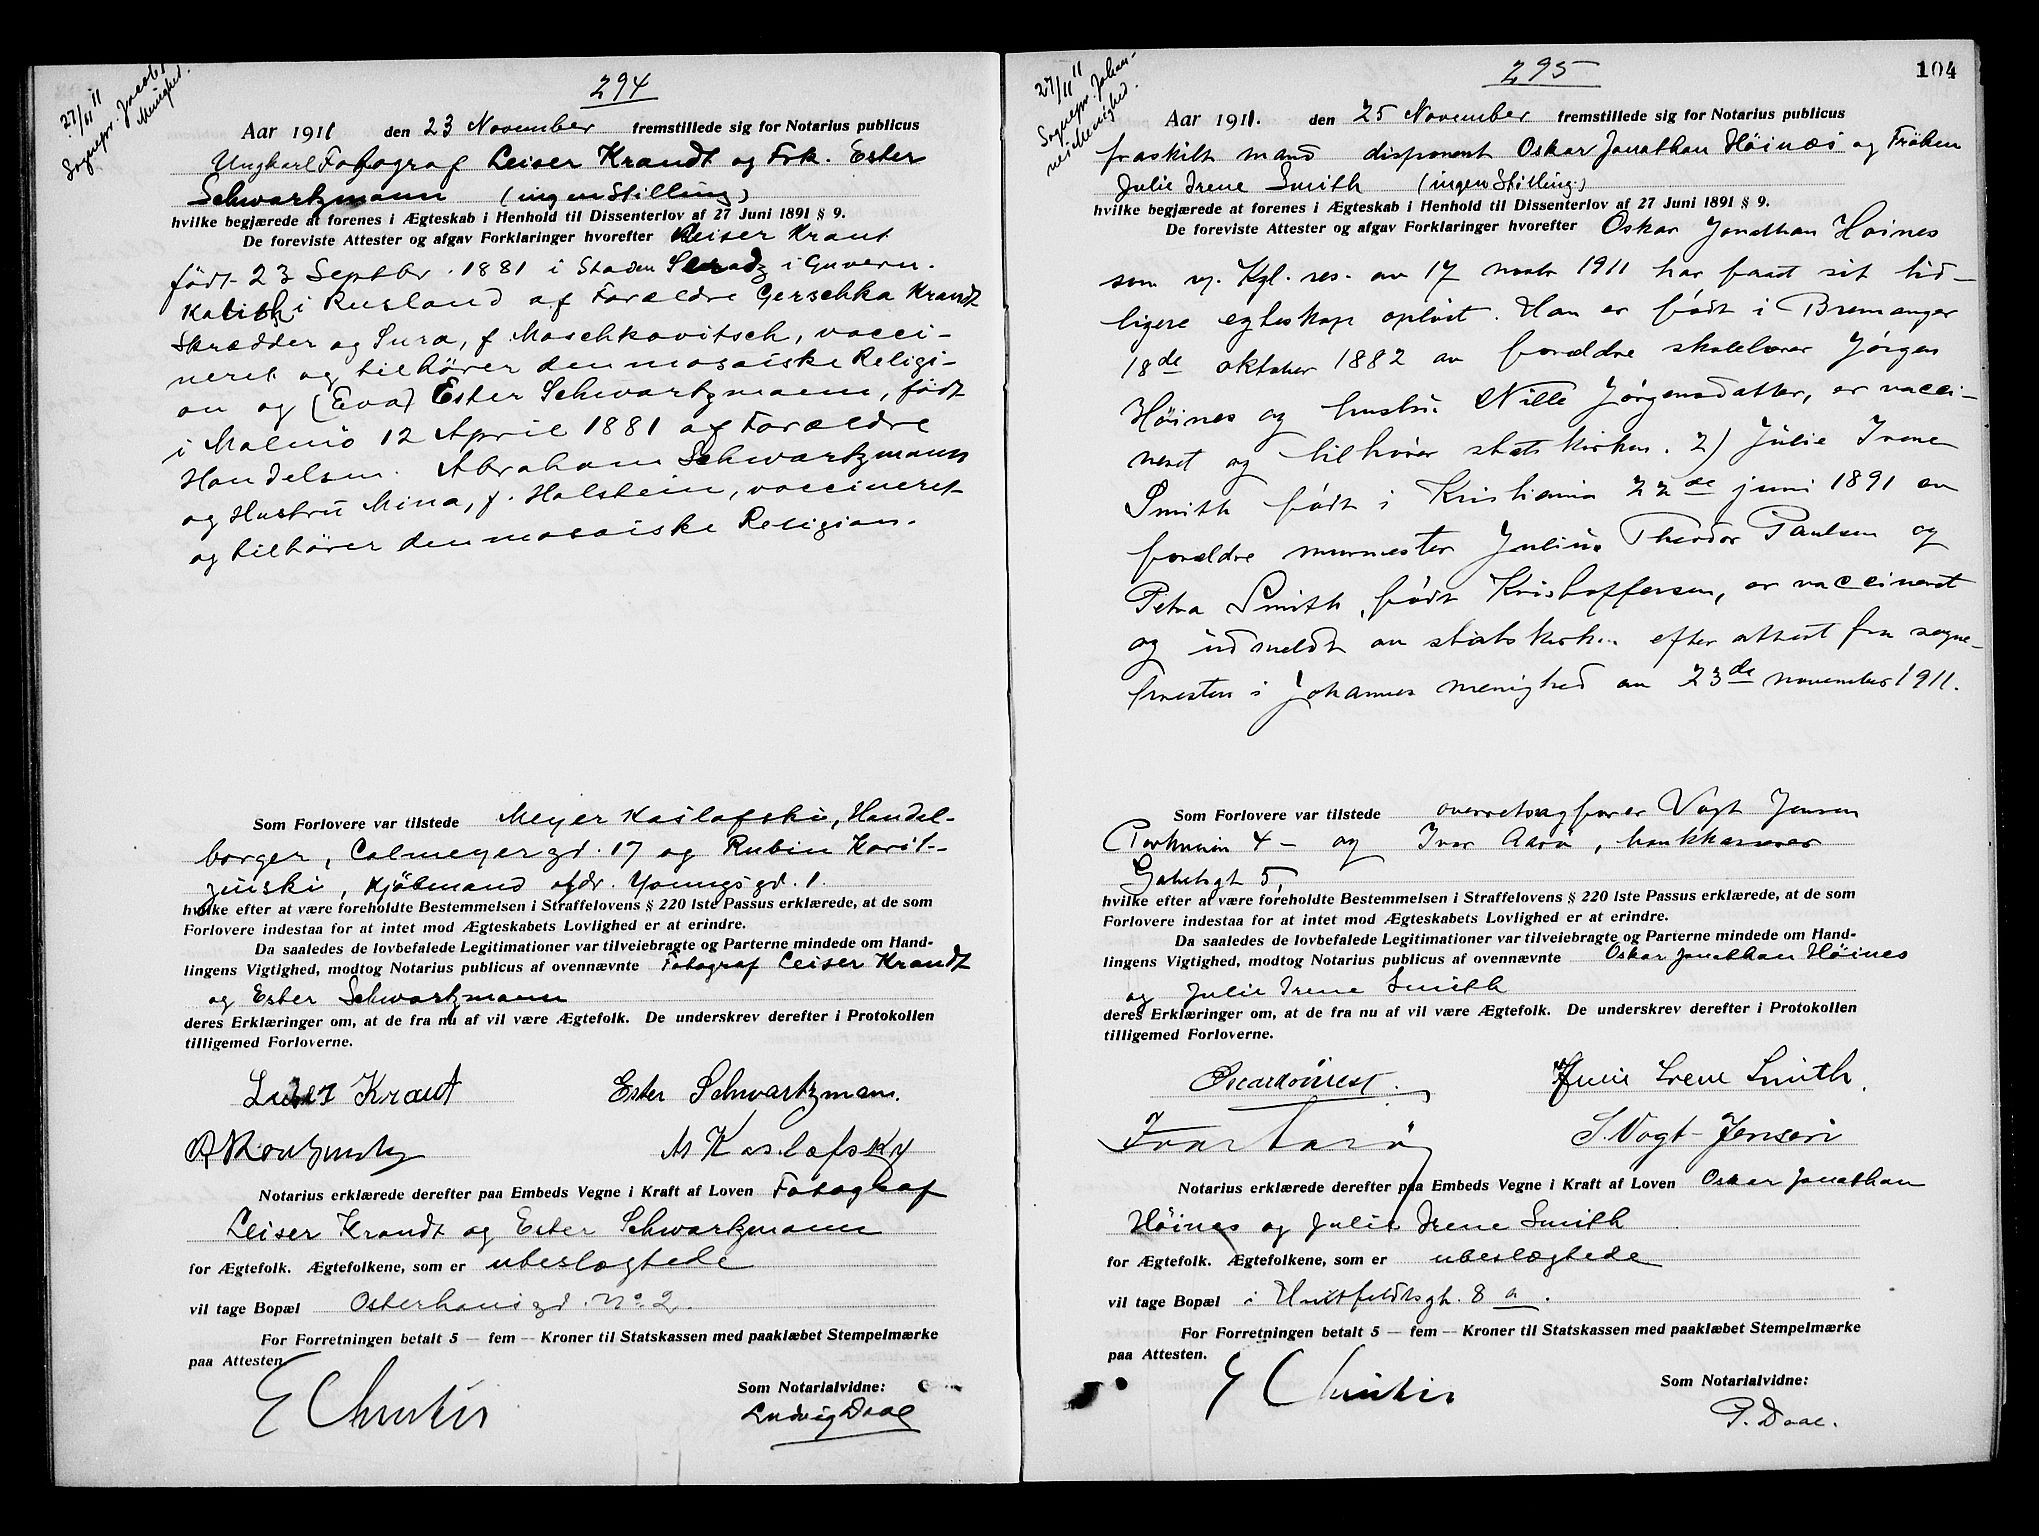 27/11 11
Sognepr. Jacobs
Menighed.
294
Aar 1911 den 23 November fremstillede sig for Notarius publicus
Ungkarl Fotograf Leiser Krandt og Frk. Ester
Schwartzmann (ingen Stilling)
hvilke begjærede at forenes i Ægteskab i Henhold til Dissenterlov af 27 Juni 1891 § 9.
De foreviste Attester og afgav Forklaringer hvorefter Leiser Kraut
født 23 Septbr. 1881 i Staden i Guvern.
Kalisch i Rusland af Forældre Gerschka Krandt
Skrædder og Sura, f. Moschkovitsch, vacci-
neret og tilhører den mosaiske Religi-
on og (Eva) Ester Schwartzmann, født
i Malmö 12 April 1881 af Forældre
Handelsm. Abraham Schwartzmann
og Hustru Mina, f. Holstein, vaccineret
og tilhører den mosaiske Religion.
Som Forlovere var tilstede Meyer Kaslafski, Handel-
borger, Calmeyergd. 17 og Rubin Korit-
zinski, Kjøbmand ofdr. Youngsgd. 1.
hvilke efter at være foreholdte Bestemmelsen i Straffelovens § 220 1ste Passus erklærede, at de som
Forlovere indestaa for at intet mod Ægteskabets Lovlighed er at erindre.
Da saaledes de lovbefalede Legitimationer var tilveiebragte og Parterne mindede om Hand-
lingens Vigtighed, modtog Notarius publicus af ovennævnte Fotograf Leiser Krandt
og Ester Schwartzmann
deres Erklæringer om, at de fra nu af vil være Ægtefolk. De underskrev derefter i Protokollen
tilligemed Forloverne.
Kraut Ester Schwartzmann.
M Kaslafsky
Notarius erklærede derefter paa Embeds Vegne i Kraft af Loven Fotograf
Leiser Krandt og Ester Schwartzmann
for Ægtefolk. Ægtefolkene, som er ubeslægtede
vil tage Bopæl Osterhausgd. No. 2.
For Forretningen betalt 5 — fem — Kroner til Statskassen med paaklæbet Stempelmærke
paa Attesten.
E Christie
Som Notarialvidne:
Ludvig Daae
27/11 11
Sognepr. Johan-
nes Menighed.
295
104
Aar 1911. den 25 November fremstillede sig for Notarius publicus
fraskilt mand disponent Oskar Jonathan Höines og Frøken
Julie Irene Smith (ingen Stilling)
hvilke begjærede at forenes i Ægteskab i Henhold til Dissenterlov af 27 Juni 1891 § 9.
De foreviste Attester og afgav Forklaringer hvorefter Oskar Jonathan Høines
som v. Kgl. res. av 17 novbr 1911 har faat sit tid-
ligere egteskap opløst. Han er født i Bremanger
18de oktober 1882 av forældre skolelærer Jørgen
Höines og hustru Nille Jørgensdatter, er vacci-
neret og tilhører statskirken. 2) Julie Irene
Smith født i Kristiania 22de juni 1891 av
forældre murmester Julius Theodor Paulsen og
Petra Smith, født Kristoffersen, er vaccineret
og udmeldt av statskirken efter attest fra sogne-
presten i Johannes menighed av 23de november 1911.
Som Forlovere var tilstede overretssagfører Vogt Jensen
Parkveien 4 - og Ivar Aarø, bankkasserer
Gabelsgt 5,
hvilke efter at være foreholdte Bestemmelsen i Straffelovens § 220 1ste Passus erklærede, at de som
Forlovere indestaa for at intet mod Ægteskabets Lovlighed er at erindre.
Da saaledes de lovbefalede Legitimationer var tilveiebragte og Parterne mindede om Hand-
lingens Vigtighed, modtog Notarius publicus af ovennævnte Oskar Jonathan Höines
og Julie Irene Smith
deres Erklæringer om, at de fra nu af vil være Ægtefolk. De underskrev derefter i Protokollen
tilligemed Forloverne.
Julie Irene Smith.
Ivar Aarø S. Vogt-Jensen
Notarius erklærede derefter paa Embeds Vegne i Kraft af Loven Oskar Jonathan
Höines og Julie Irene Smith
for Ægtefolk. Ægtefolkene, som er ubeslægtede
vil tage Bopæl i Huitfeldtsgt. 8 a.
For Forretningen betalt 5 — fem — Kroner til Statskassen med paaklæbet Stempelmærke
paa Attesten.
E Christie
Som Notarialvidne:
P. Daae.